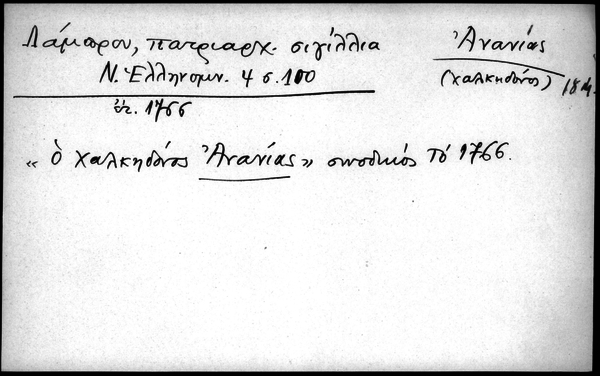 Λάμπρου, πατριαρχ. σιγίλλια
Ν. Ἑλληνομν. 4 σ. 100
ἔτ. 1766
Ἀνανίας
(Χαλκηδόνος) 18 αἰ.
« ὁ Χαλκηδόνος Ἀνανίας » συνοδικός τό 1766.